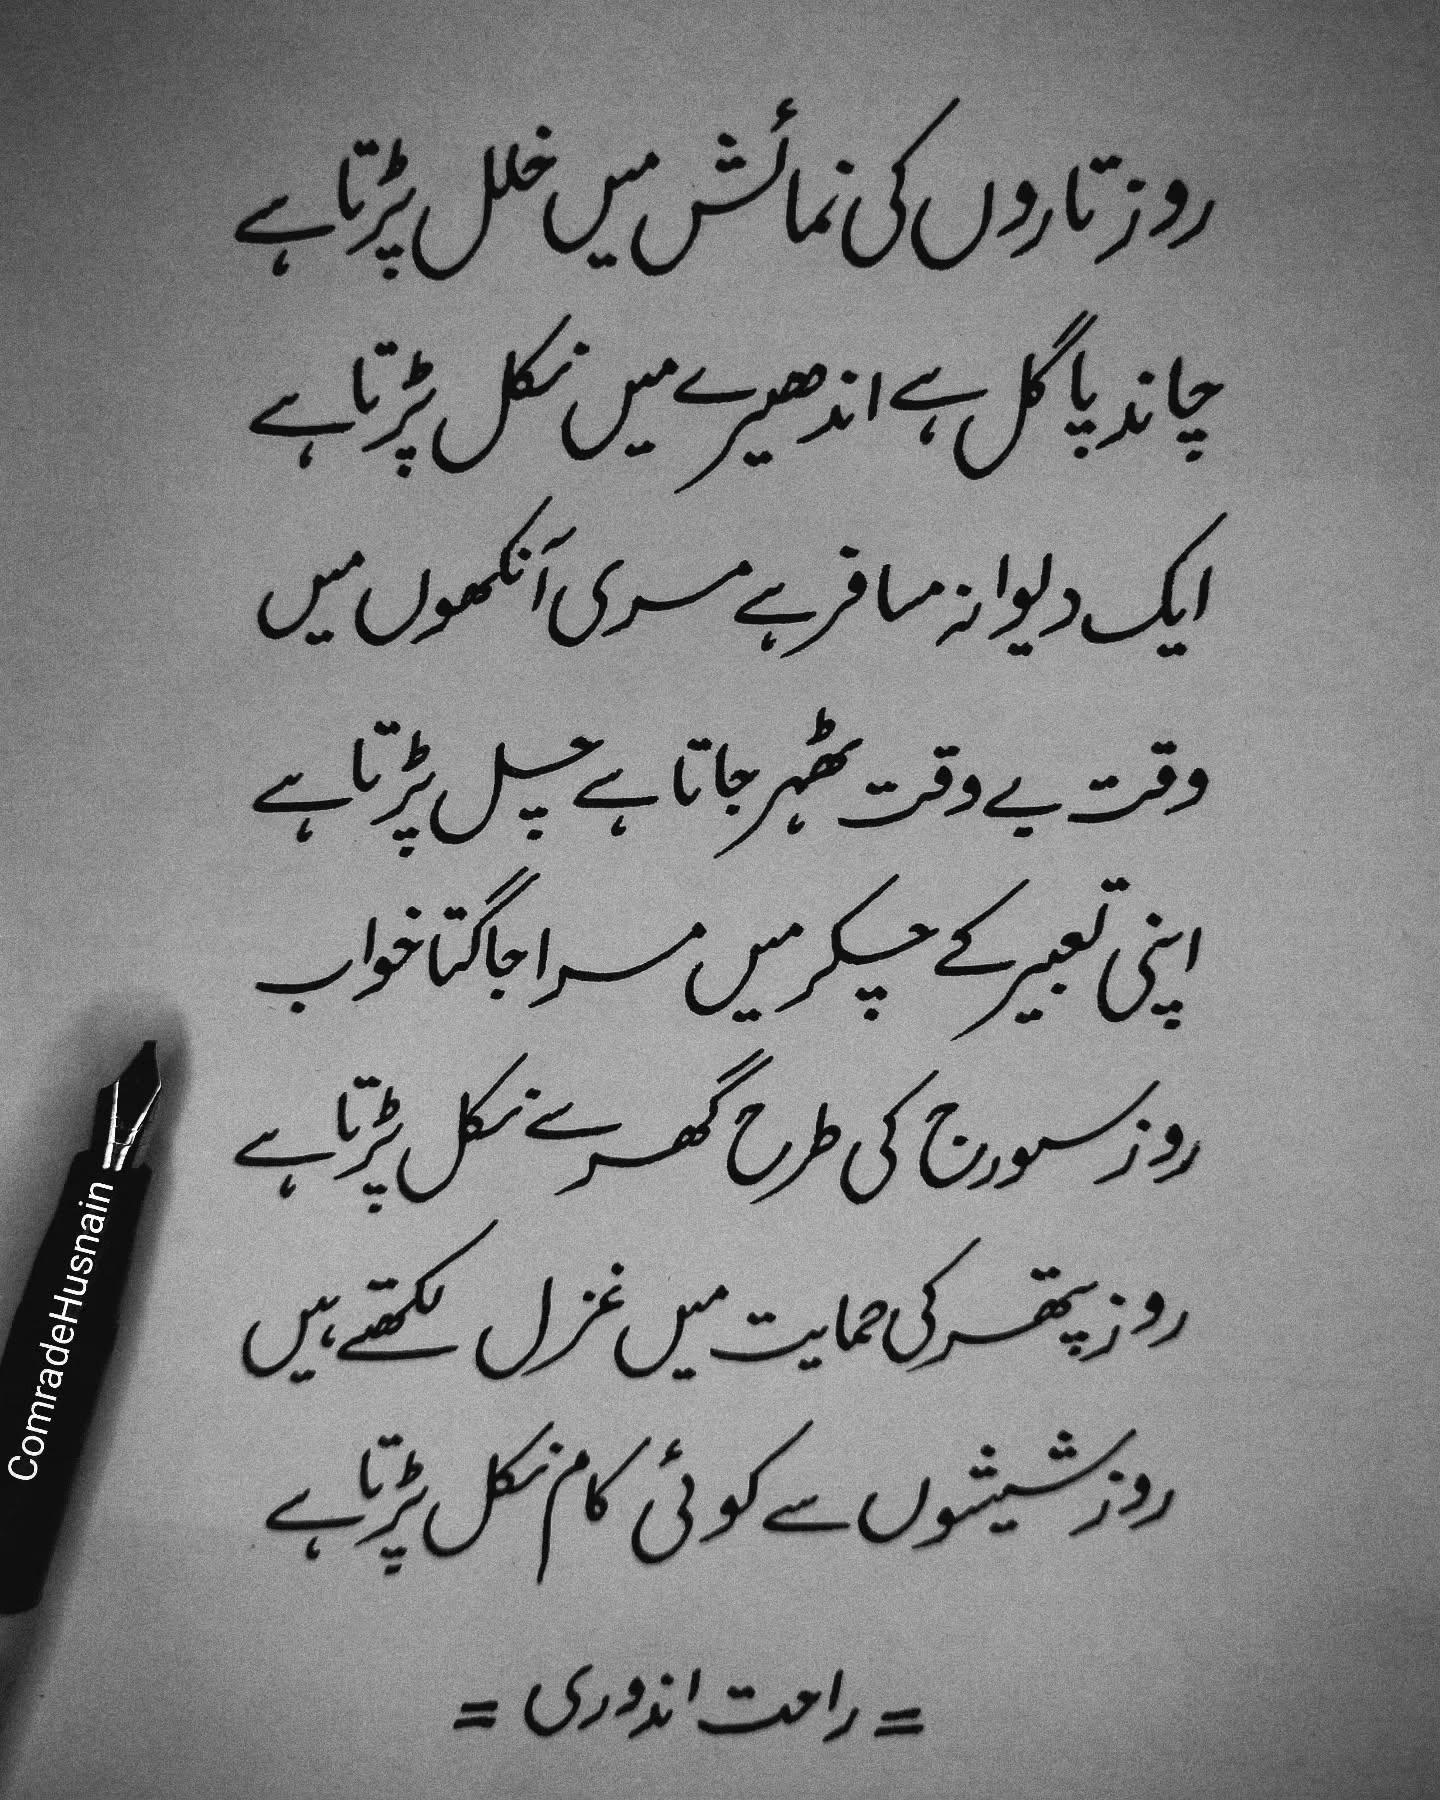 روز تاروں کی نمائش میں خلل پڑتا ہے
چاند پاگل ہے اندھیرے میں نکل پڑتا ہے
ایک دیوانہ مسافر ہے مری آنکھوں میں
وقت بے وقت ٹھہر جاتا ہے چل پڑتا ہے
اپنی تعبیر کے چکر میں مرا جاگتا خواب
روز سورج کی طرح گھر سے نکل پڑتا ہے
روز پتھر کی حمایت میں غزل لکھتے ہیں
روز شیشوں سے کوئی کام نکل پڑتا ہے
= راحت اندوری =
ComradeHusnain